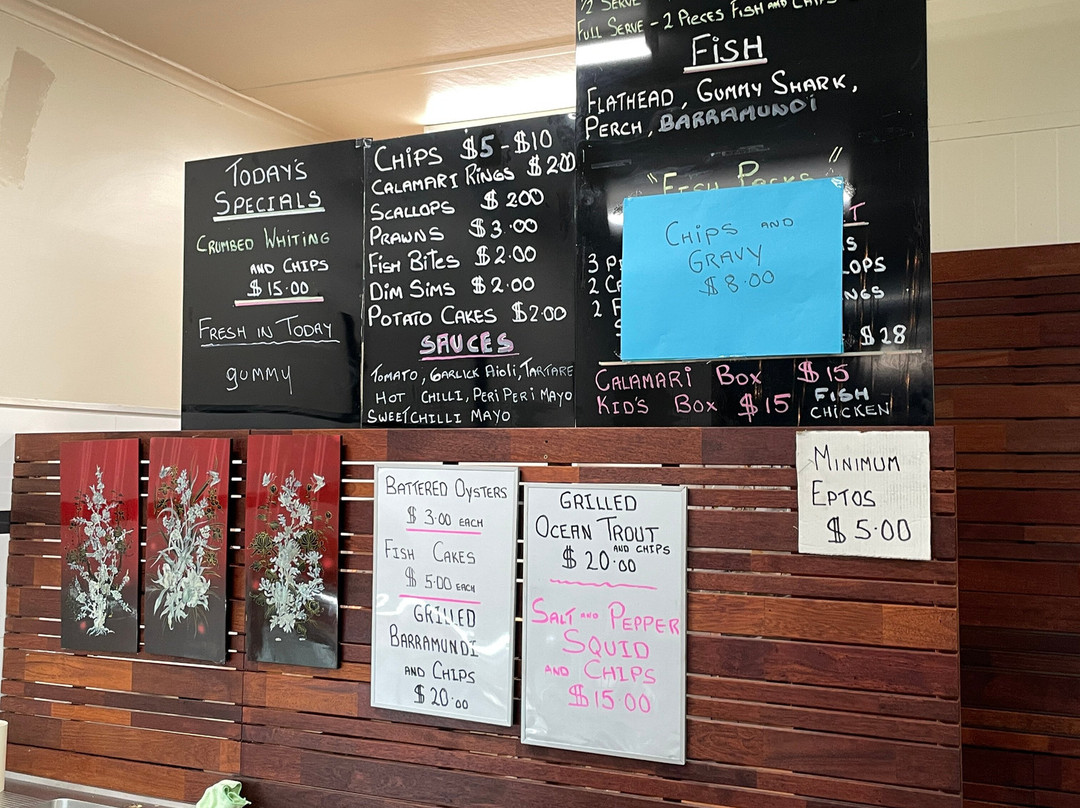 TODAY'S
SPECIALS
CRUMBED WHITING
AND CHIPS
$15.00
FRESH IN TODAY
GUMMY
CHIPS $5-$10
CALAMARI RINGS $2.00
SCALLOPS $200
PRAWNS $3.00
FISH BITES $2.00
DIM SIMS $2.00
POTATO CAKES $2.00
SAUCES
TOMATO, GARLICK AIOLI, TARTARE
HOT CHILLI, PERI PERI MAYO
SWEET CHILLI MAYO
1/2 SERVE
FULL SERVE - 2 PIECES FISH AND CHIPS
FISH
FLATHEAD, GUMMY SHARK,
PERCH, BARRAMUNDI
"FISH PACKS"
3
2
2
$28
CHIPS AND
GRAVY
$8.00
CALAMARI BOX $15
KID'S BOX $15 FISH
CHICKEN
BATTERED OYSTERS
$3.00 EACH
FISH CAKES
$5.00 EACH
GRILLED
BARRAMUNDI
AND CHIPS
$20.00
GRILLED
OCEAN TROUT
AND CHIPS
$20.00
SALT AND PEPPER
SQUID
AND CHIPS
$15.00
MINIMUM
EPTOS
$5.00